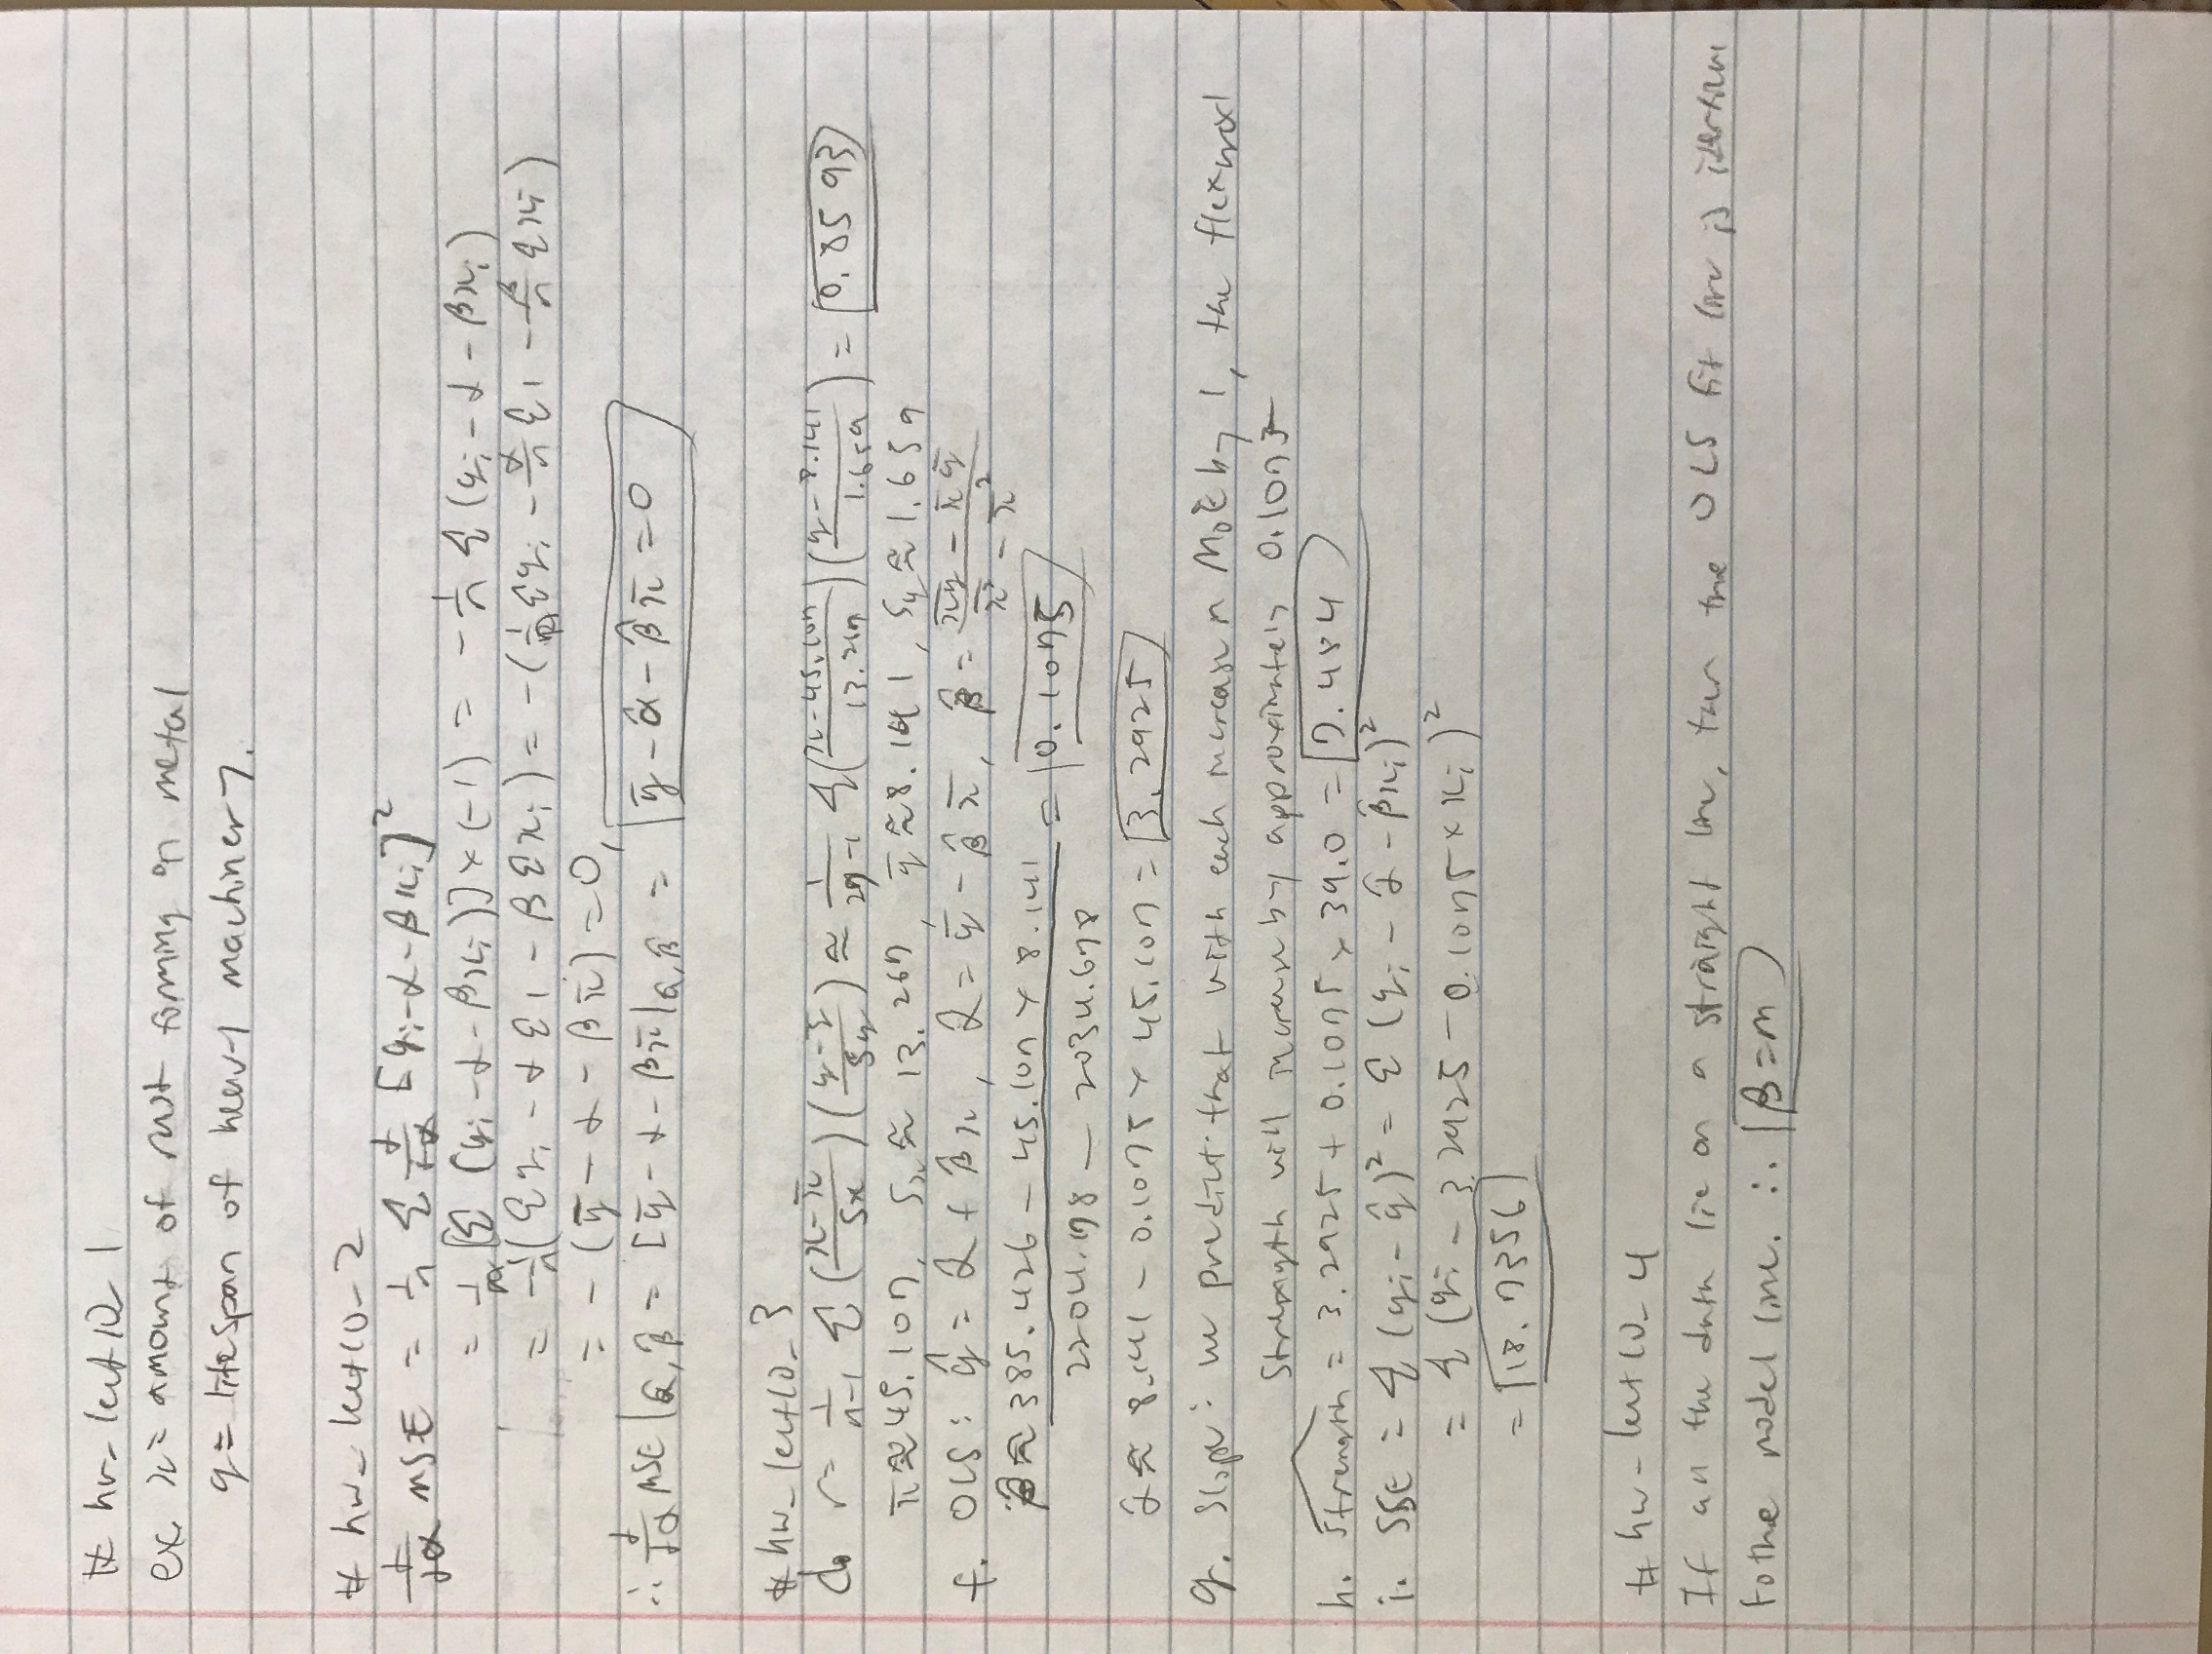 # hw_lect10_1
ex. x = amount of rust forming on metal
y = lifespan of heavy machinery.
# hw_lect10_2
d/dα MSE = 1/n Σ d/dα [yi - α - βxi]²
= 1/n [Σ (yi - α - βxi)] × (-1) = -1/n Σ (yi - α - βxi)
= -1/n (Σ yi - α Σ 1 - β Σ xi) = -(1/n Σ yi - α/n Σ 1 - β/n Σ xi)
= -(ȳ - α - βx̄) = 0,
∴ d/dα MSE |α̂,β̂ = [ȳ - α - βx̄|α̂,β̂ = ȳ - α̂ - β̂x̄ = 0
# hw_lect10_3
d. r = 1/n-1 Σ (x-x̄/Sx)(y-ȳ/Sy) ≈ 1/29-1 Σ (x-45.107/13.267)(y-8.141/1.659) = 0.8593
x̄ ≈ 45.107, Sx ≈ 13.267, ȳ ≈ 8.141, Sy ≈ 1.659
f. OLS: ŷ = α̂ + β̂x, α̂ = ȳ - β̂x̄, β̂ = x̄ȳ - x̄ ȳ / x̄² - x̄²
β̂ ≈ 385.426 - 45.107 × 8.141 / 2204.198 - 2034.678 = 0.1075
α̂ ≈ 8.141 - 0.1075 × 45.107 = 3.2925
g. Slope: we predict that with each increase in MoE by 1, the flexural
strength will increase by approximately 0.1075
h. strength = 3.2925 + 0.1075 × 39.0 = 7.484
i. SSE = Σ (yi - ŷ)² = Σ (yi - α̂ - β̂xi)²
= Σ (yi - 3.2925 - 0.1075 × xi)²
= 18.7356
# hw_lect10_4
If all the data lie on a straight line, then the OLS fit line is
to the model line. ∴ β = m